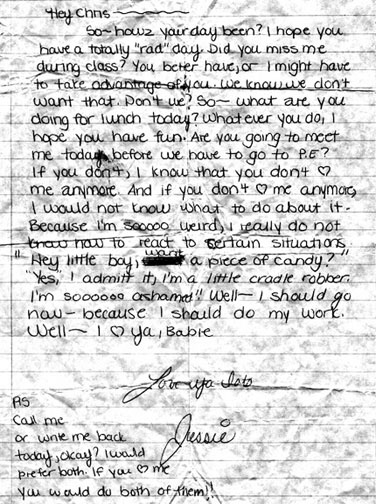 Hey Chris
So~ howz yair day been? I hope you
have a totally "rad" day. Did you miss me
during class? You beter have, or I might have
to take advantage of you. We know we don't
want that. Don't we? So~ what are you
doing for lunch today? Whatever you do, I
hope you have fun. Are you going to meet
me today before we have to go to P.E?
If you don't, I know that you don't ♡
me anymore. And if you don't ♡ me anymore,
I would not know what to do about it-
Because I'm sooooo weird, I really do not
know how to react to certain situations.
"Hey little boy, want a piece of candy?"
"Yes," I admitt it, I'm a little cradle robber.
I'm sooooooo ashamed!! Well~ I should go
now- because I should do my work.
Well~ I ♡ ya, Babie
Love ya lots
Jessie
PS
Call me
or write me back
today, okay? I would
prefer both. If you ♡ me
you would do both of them!!